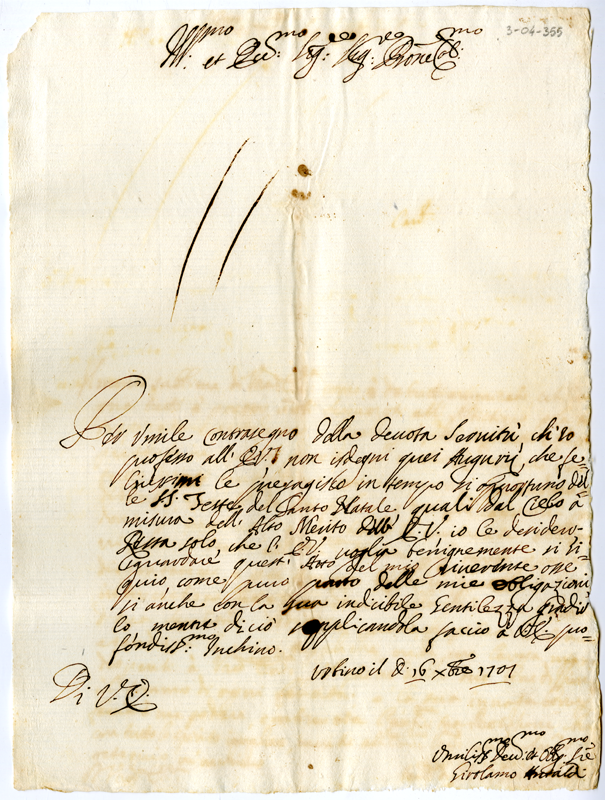 3-04-355
Ill.mo et Rev.mo Sig.re Sig.re Prone Col.mo
Per umile contrasegno della devota Servitù, ch'io
professo all' E.V. non isdegni quei Augurij, che
le presagisco in tempo sì oportuno del-
le SS. Feste del Santo Natale quali dal Cielo à
misura dell' Alto Merito dell' E.V. io le desidero
Resta solo che l' E.V. voglia benignamente sì
quest' Atto del mio riverente osse-
quio come puro parto delle mie obligazioni
sì anche con la sua indicibile Gentilezza
di ciò supplicandola faccio à V.E. pro-
fondiss.mo Inchino.
Urbino il dì 16 Xbre 1701
Di V.E.
Umiliss.mo Dev.mo et Obl.mo Sre
Girolamo